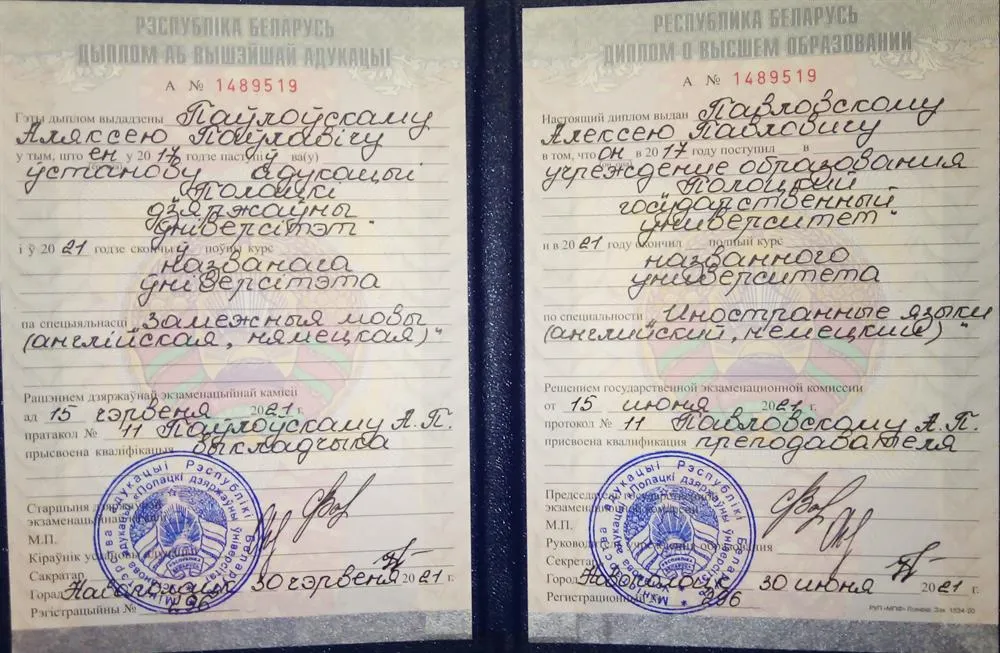 РЭСПУБЛІКА БЕЛАРУСЬ
ДЫПЛОМ АБ ВЫШЭЙШАЙ АДУКАЦЫІ
А № 1489519
Гэты дыплом выдадзены Паўлоўскаму
Аляксею Паўлавічу
у тым, што ён у 2017 годзе паступіў ва(у)
ўстанову адукацыі
"Полацкі
дзяржаўны
ўніверсітэт"
і ў 2021 годзе скончыў поўны курс
названага
ўніверсітэта
па спецыяльнасці "Замежныя мовы
(англійская, нямецкая)"
Рашэннем дзяржаўнай экзаменацыйнай камісіі
ад 15 чэрвеня 2021 г.
пратакол № 11 Паўлоўскаму А.П.
прысвоена кваліфікацыя выкладчыка
Старшыня дзяржаўнай
экзаменацыйнай
М.П.
Кіраўнік установы адукацыі
Сакратар
Горад Наваполацк 30 чэрвеня 2021 г.
Рэгістрацыйны № 296
РЕСПУБЛИКА БЕЛАРУСЬ
ДИПЛОМ О ВЫСШЕМ ОБРАЗОВАНИИ
А № 1489519
Настоящий диплом выдан Павловскому
Алексею Павловичу
в том, что он в 2017 году поступил в
учреждение образования
"Полоцкий
государственный
университет"
и в 2021 году окончил полный курс
названного
университета
по специальности "Иностранные языки
(английский, немецкий)"
Решением государственной экзаменационной комиссии
от 15 июня 2021 г.
протокол № 11 Павловскому А.П.
присвоена квалификация преподавателя
Председатель государственной
экзаменационной комиссии
М.П.
Руководитель учреждения образования
Секретарь
Город Новополоцк 30 июня 2021 г.
Регистрационный № 296
РУП «МПФ» Гознака. Зак. 1534-20